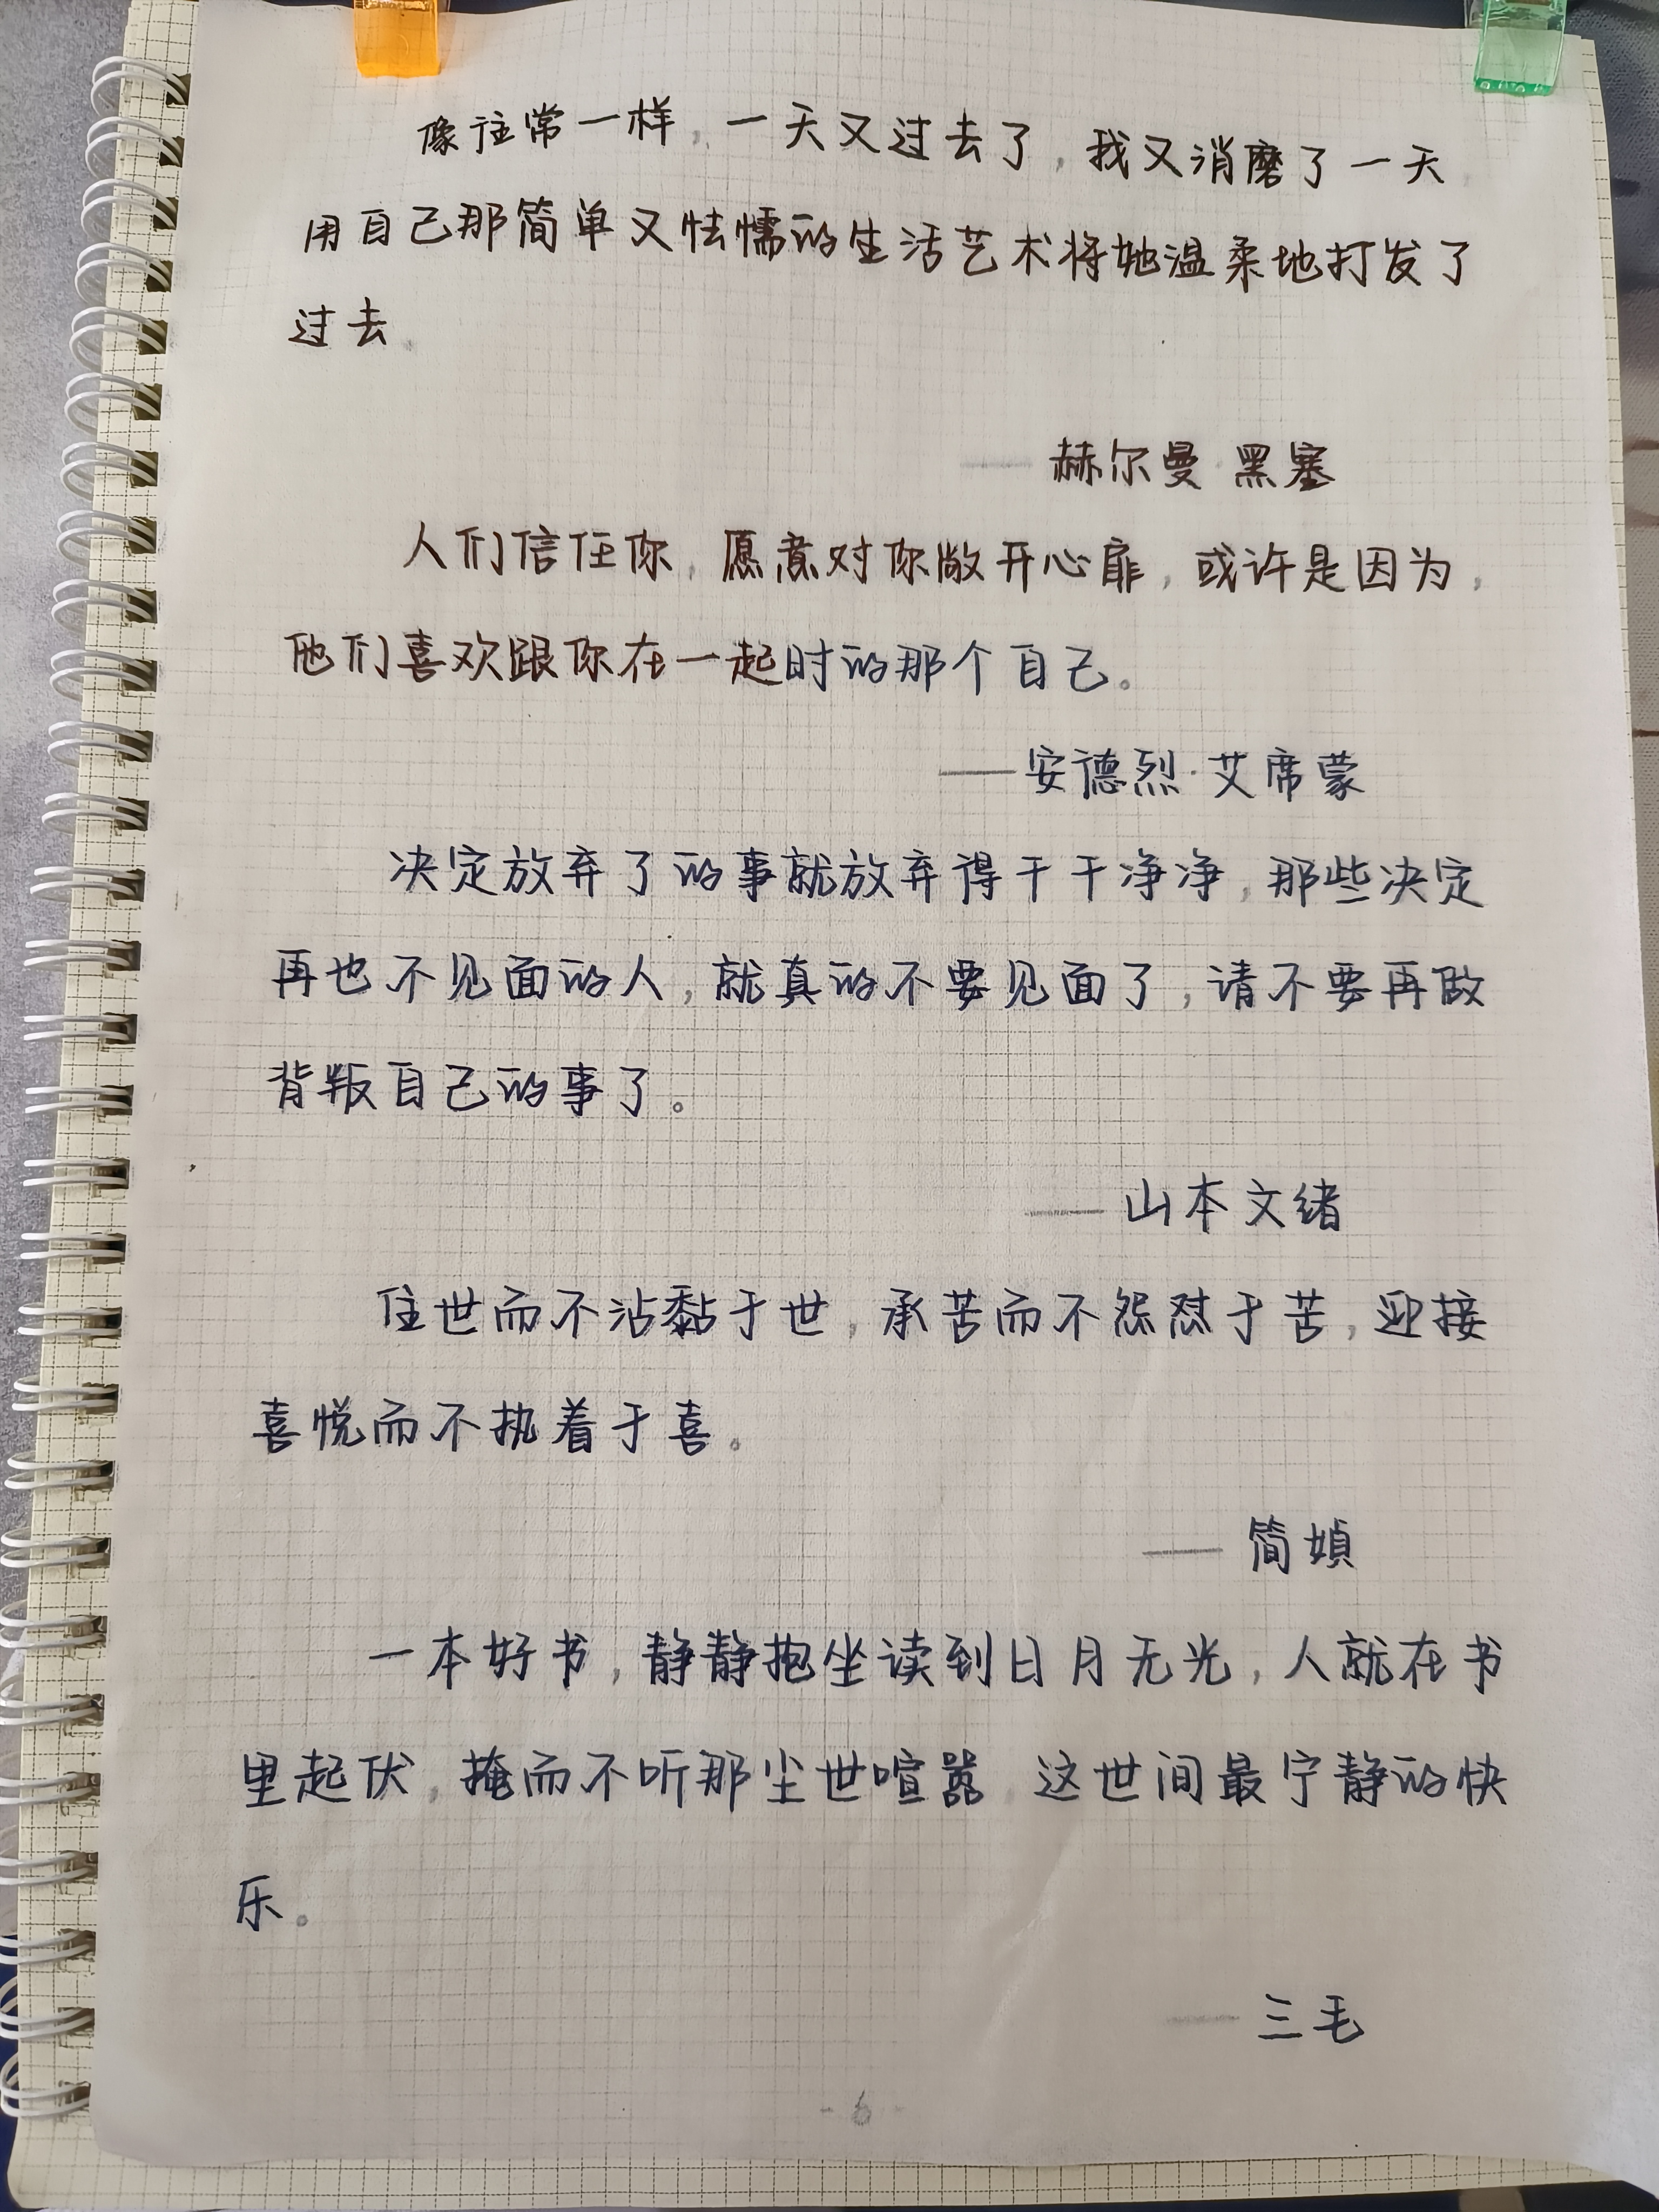 像往常一样，一天又过去了，我又消磨了一天，
用自己那简单又怯懦的生活艺术将她温柔地打发了
过去。
——赫尔曼·黑塞
人们信任你，愿意对你敞开心扉，或许是因为，
他们喜欢跟你在一起时的那个自己。
——安德烈·艾席蒙
决定放弃了的事就放弃得干干净净，那些决定
再也不见面的人，就真的不要见面了，请不要再做
背叛自己的事了。
——山本文绪
住世而不沾黏于世，承苦而不怨怼于苦，迎接
喜悦而不执着于喜。
——简媜
一本好书，静静抱坐读到日月无光，人就在书
里起伏，掩而不听那尘世喧嚣，这世间最宁静的快
乐。
——三毛
-6-